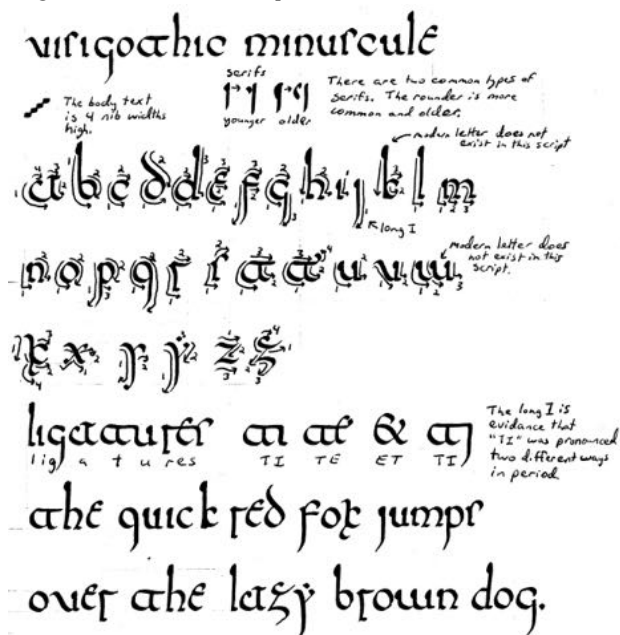 visigothic minuscule
The body text
is 4 nib widths
high.
serifs
younger older
There are two common types of
serifs. The rounder is more
common and older.
modern letter does not
exist in this script
a b c d d e f g h i j k l m
long I
n o p q r s t t u v w
modern letter does
not exist in this
script.
x x y ẏ z z
ligatures ti te & tj
lig a t u res TI TE ET TI
The long I is
evidance that
"TI" was pronounced
two different ways
in period
the quick red fox jumps
over the lazy brown dog.